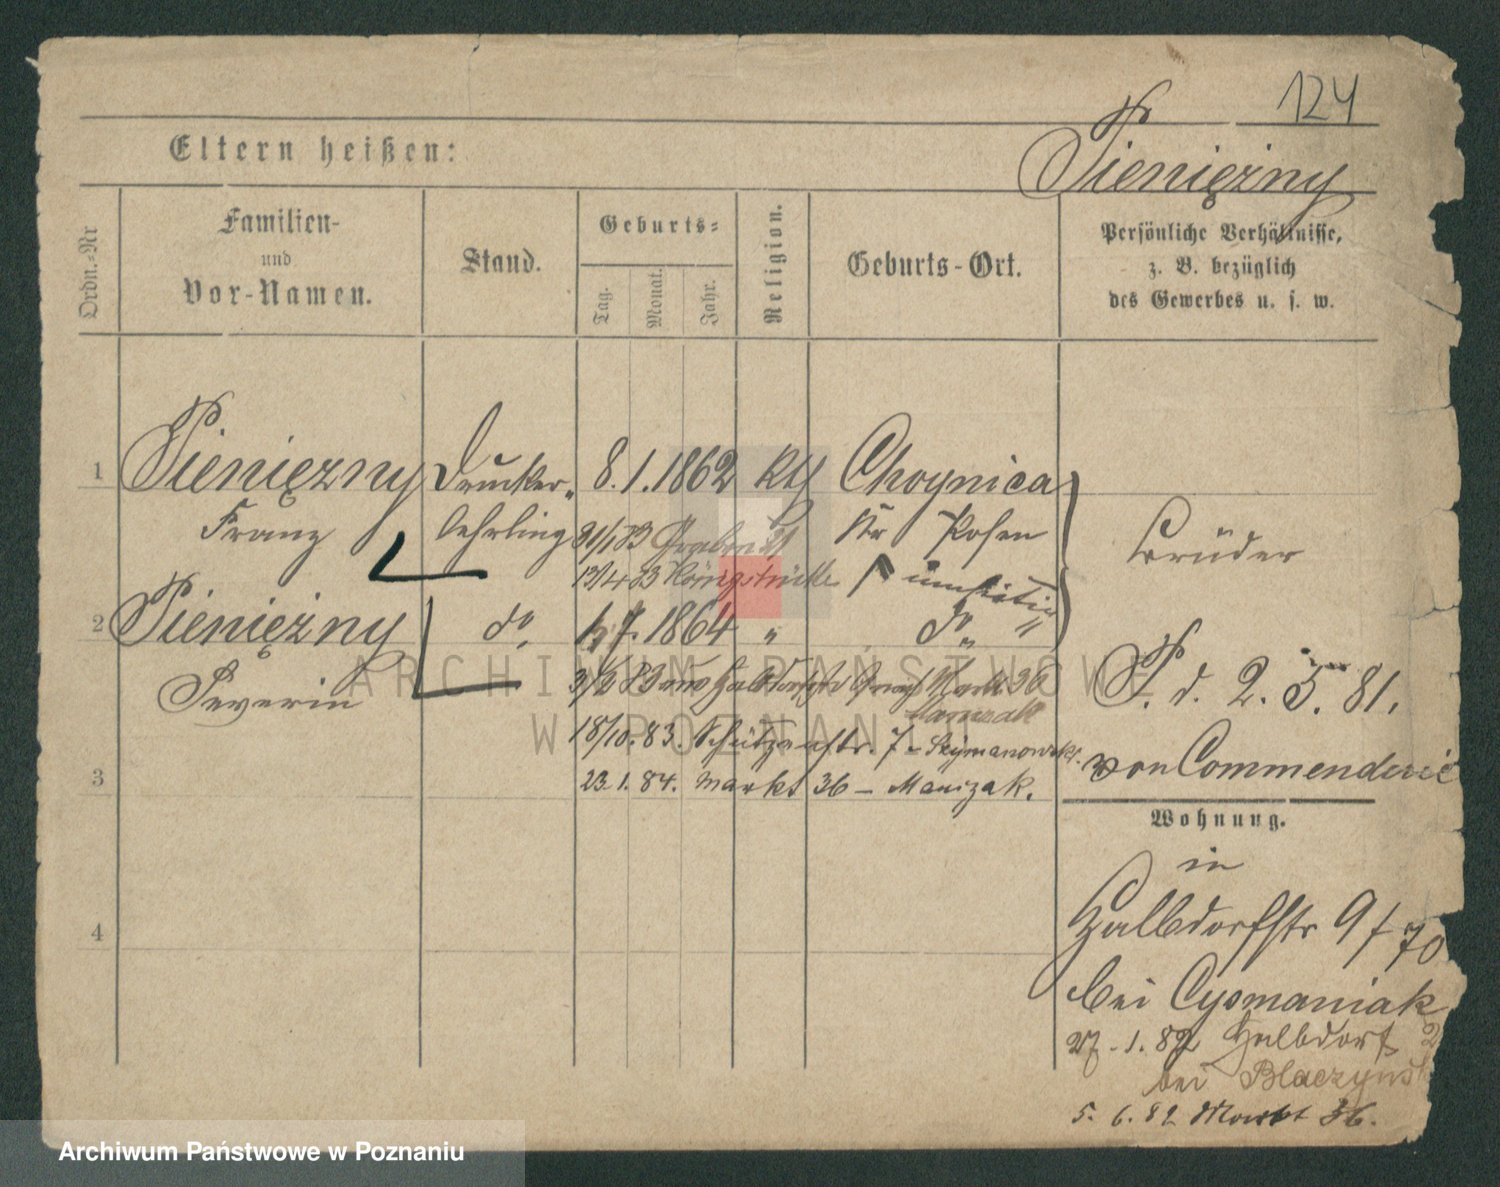 124
Eltern heißen:
Pieniężny
Ordn.-Nr
Familien-
und
Vor-Namen.
Stand.
Geburts-
Tag.
Monat.
Jahr.
Religion.
Geburts-Ort.
Persönliche Verhältnisse,
z. B. bezüglich
des Gewerbes u. s. w.
1
Pieniężny
Franz
Drucker-
lehrling
8. 1. 1862
kth
Choynica
Kr Posen
Brüder
13/4 83 Königstr
2
Pieniężny
Severin
do
7. 1864
"
do "
P. d. 2. 5. 81.
von
Halbdorfstr
Markt 36
Manizak
18/10. 83. Schützenstr. 7 - Szymanowski.
3
23. 1. 84. Markt 36 - Manizak.
4
Wohnung.
in
Halbdorfstr 9 / 70
bei Cysmaniak
27. 1. 82 Halbdorf
bei
5. 6. 82 Markt 36.
ARCHIWUM PAŃSTWOWE
W POZNANIU
Archiwum Państwowe w Poznaniu